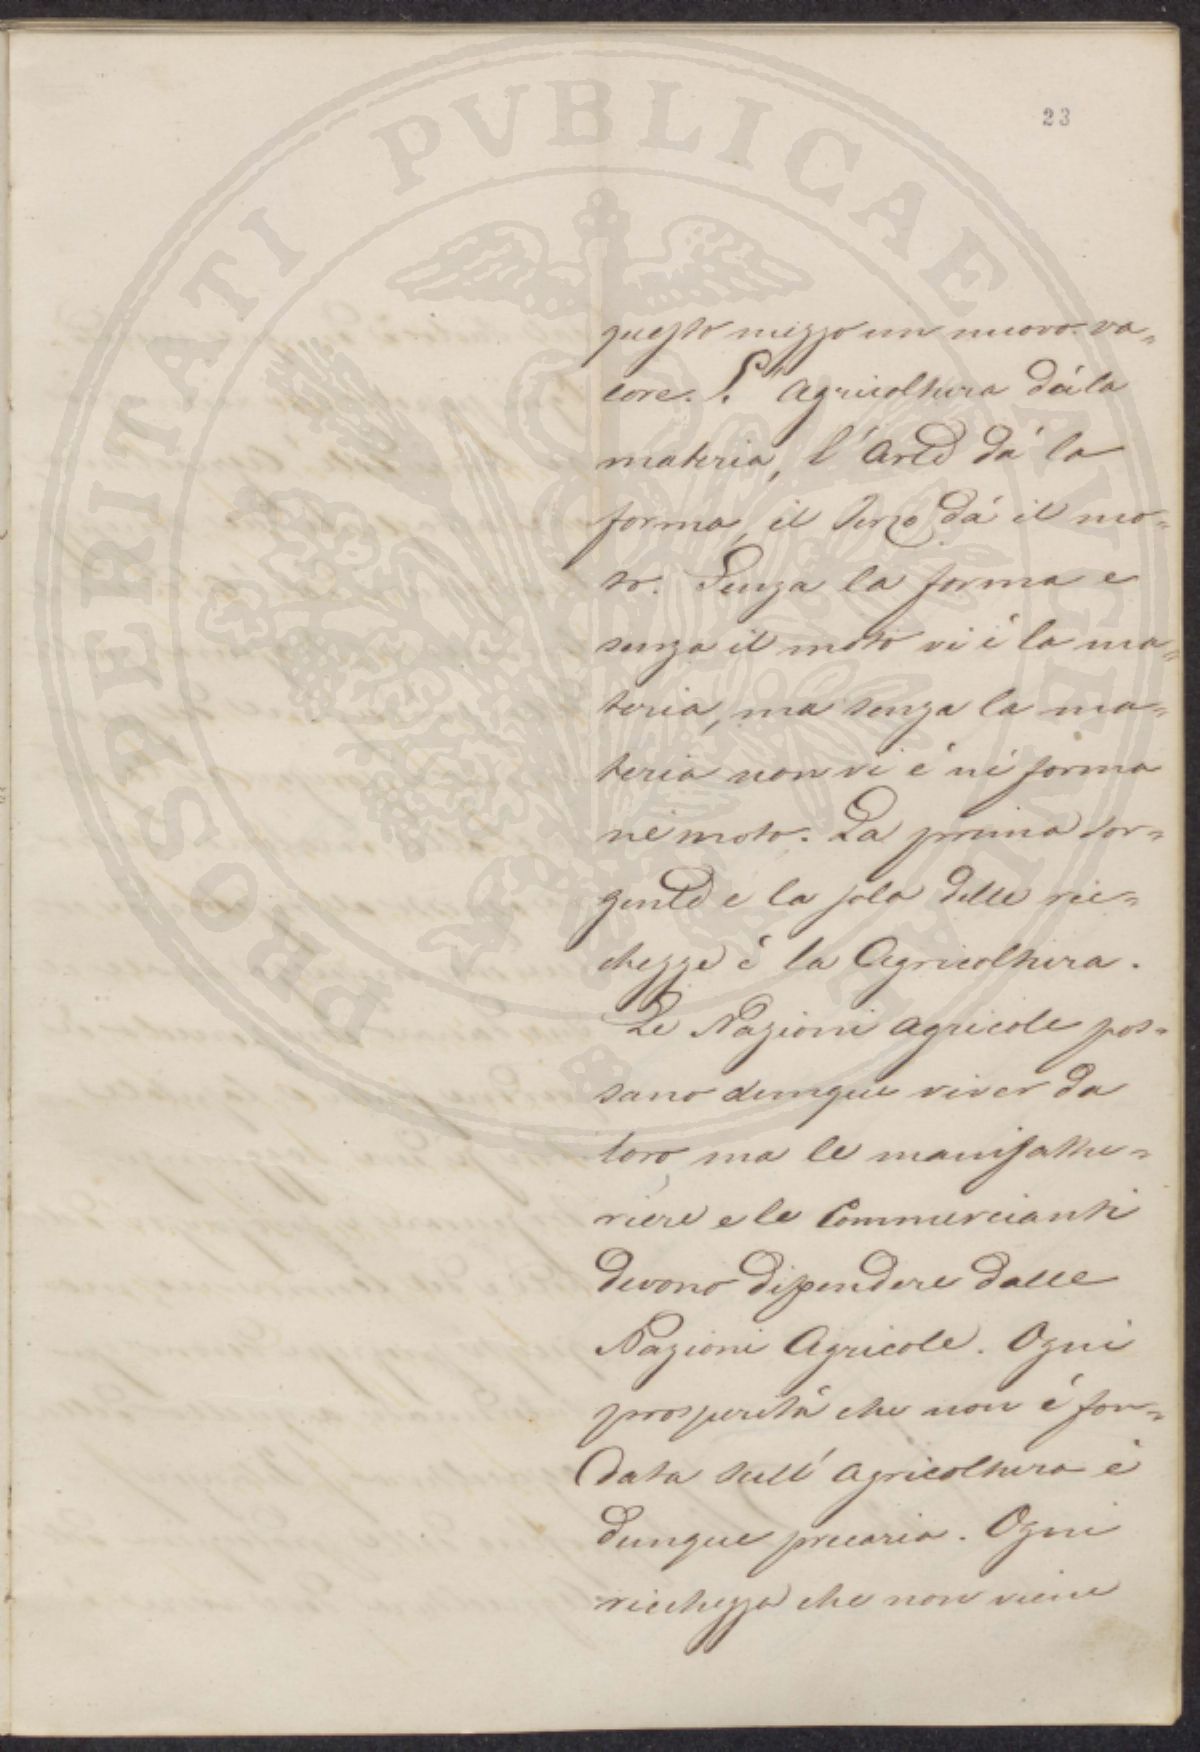 23
questo mezzo un nuovo va=
lore. L'Agricoltura dá la
materia, l'Arte dá la
forma, il Terzo dá il mo=
to. Senza la forma e
senza il moto vi é la ma=
teria, ma senza la ma=
teria non vi é né forma
né moto. La prima sor=
gente e la sola delle ric=
chezze é la Agricoltura.
Le Nazioni agricole pos=
sano dunque viver da
loro ma le manifattu=
riere e le Commercianti
devono dipendere dalle
Nazioni Agricole. Ogni
prosperitá che non é fon=
data sull'agricoltura é
dunque precaria. Ogni
ricchezza che non viene
PROSPERITATI PVBLICAE AVGENDAE